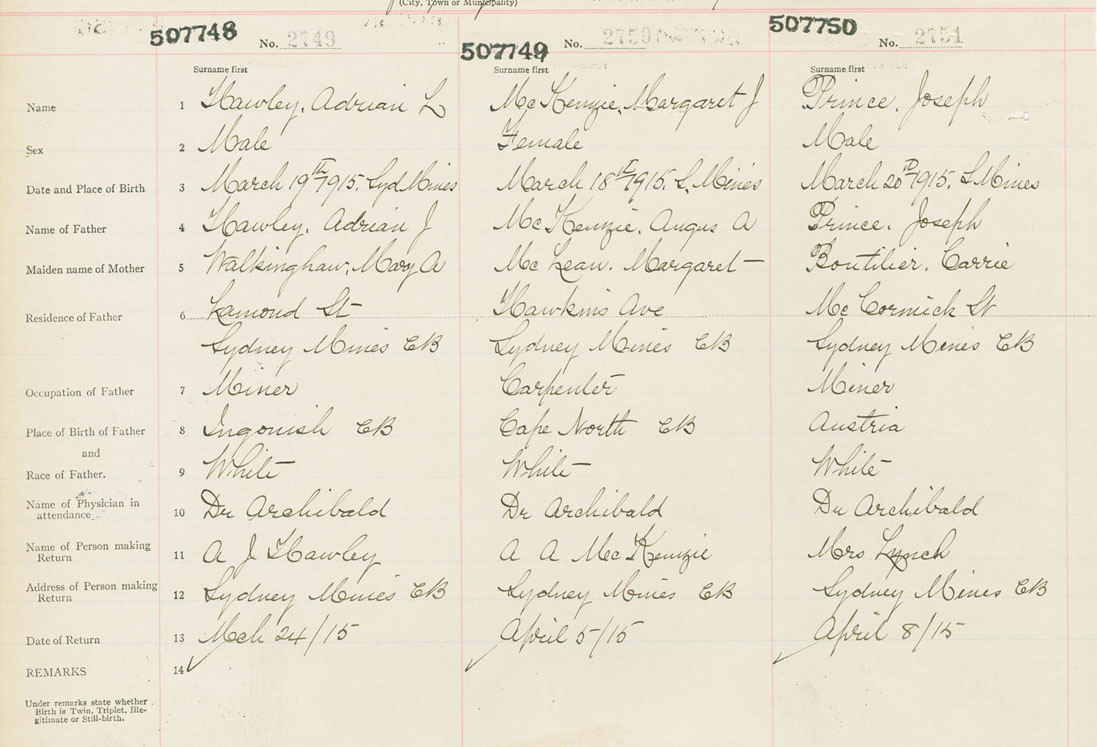 (City, Town or Municipality)
507748 No. 2749 507749 No. 2750 507750 No. 2751
Surname first Surname first Surname first
Name 1 Hawley, Adrian L McKenzie, Margaret J Prince, Joseph
Sex 2 Male Female Male
Date and Place of Birth 3 March 19th 1915. Syd Mines March 18th 1915. S. Mines March 20th 1915. S Mines
Name of Father 4 Hawley, Adrian J McKenzie, Angus A Prince, Joseph
Maiden name of Mother 5 Walkinghaw, Mary A McLean, Margaret Boutilier, Carrie
Residence of Father 6 Lamond St Hawkins Ave McCormick St
Sydney Mines CB Sydney Mines CB Sydney Mines CB
Occupation of Father 7 Miner Carpenter Miner
Place of Birth of Father 8 Ingonish CB Cape North CB Austria
and
Race of Father. 9 White White White
Name of Physician in
attendance 10 Dr Archibald Dr Archibald Dr Archibald
Name of Person making
Return 11 A J Hawley A A McKenzie Mrs Lynch
Address of Person making
Return 12 Sydney Mines CB Sydney Mines CB Sydney Mines CB
Date of Return 13 Mch 24/15 April 5/15 April 8/15
REMARKS 14
Under remarks state whether
Birth is Twin, Triplet, Ille-
gitimate or Still-birth.